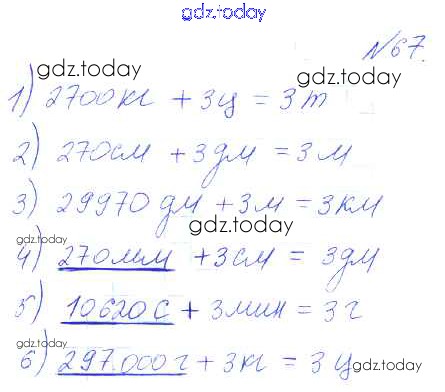 gdz.today
№67.
gdz.today
gdz.today
1) 2700кг + 3ц = 3т
2) 270см + 3дм = 3м
3) 29970дм + 3м = 3км
gdz.today
gdz.today
4) 270мм + 3см = 3дм
5) 10620с + 3мин = 3г
6) 297.000г + 3кг = 3ц
gdz.today
gdz.today